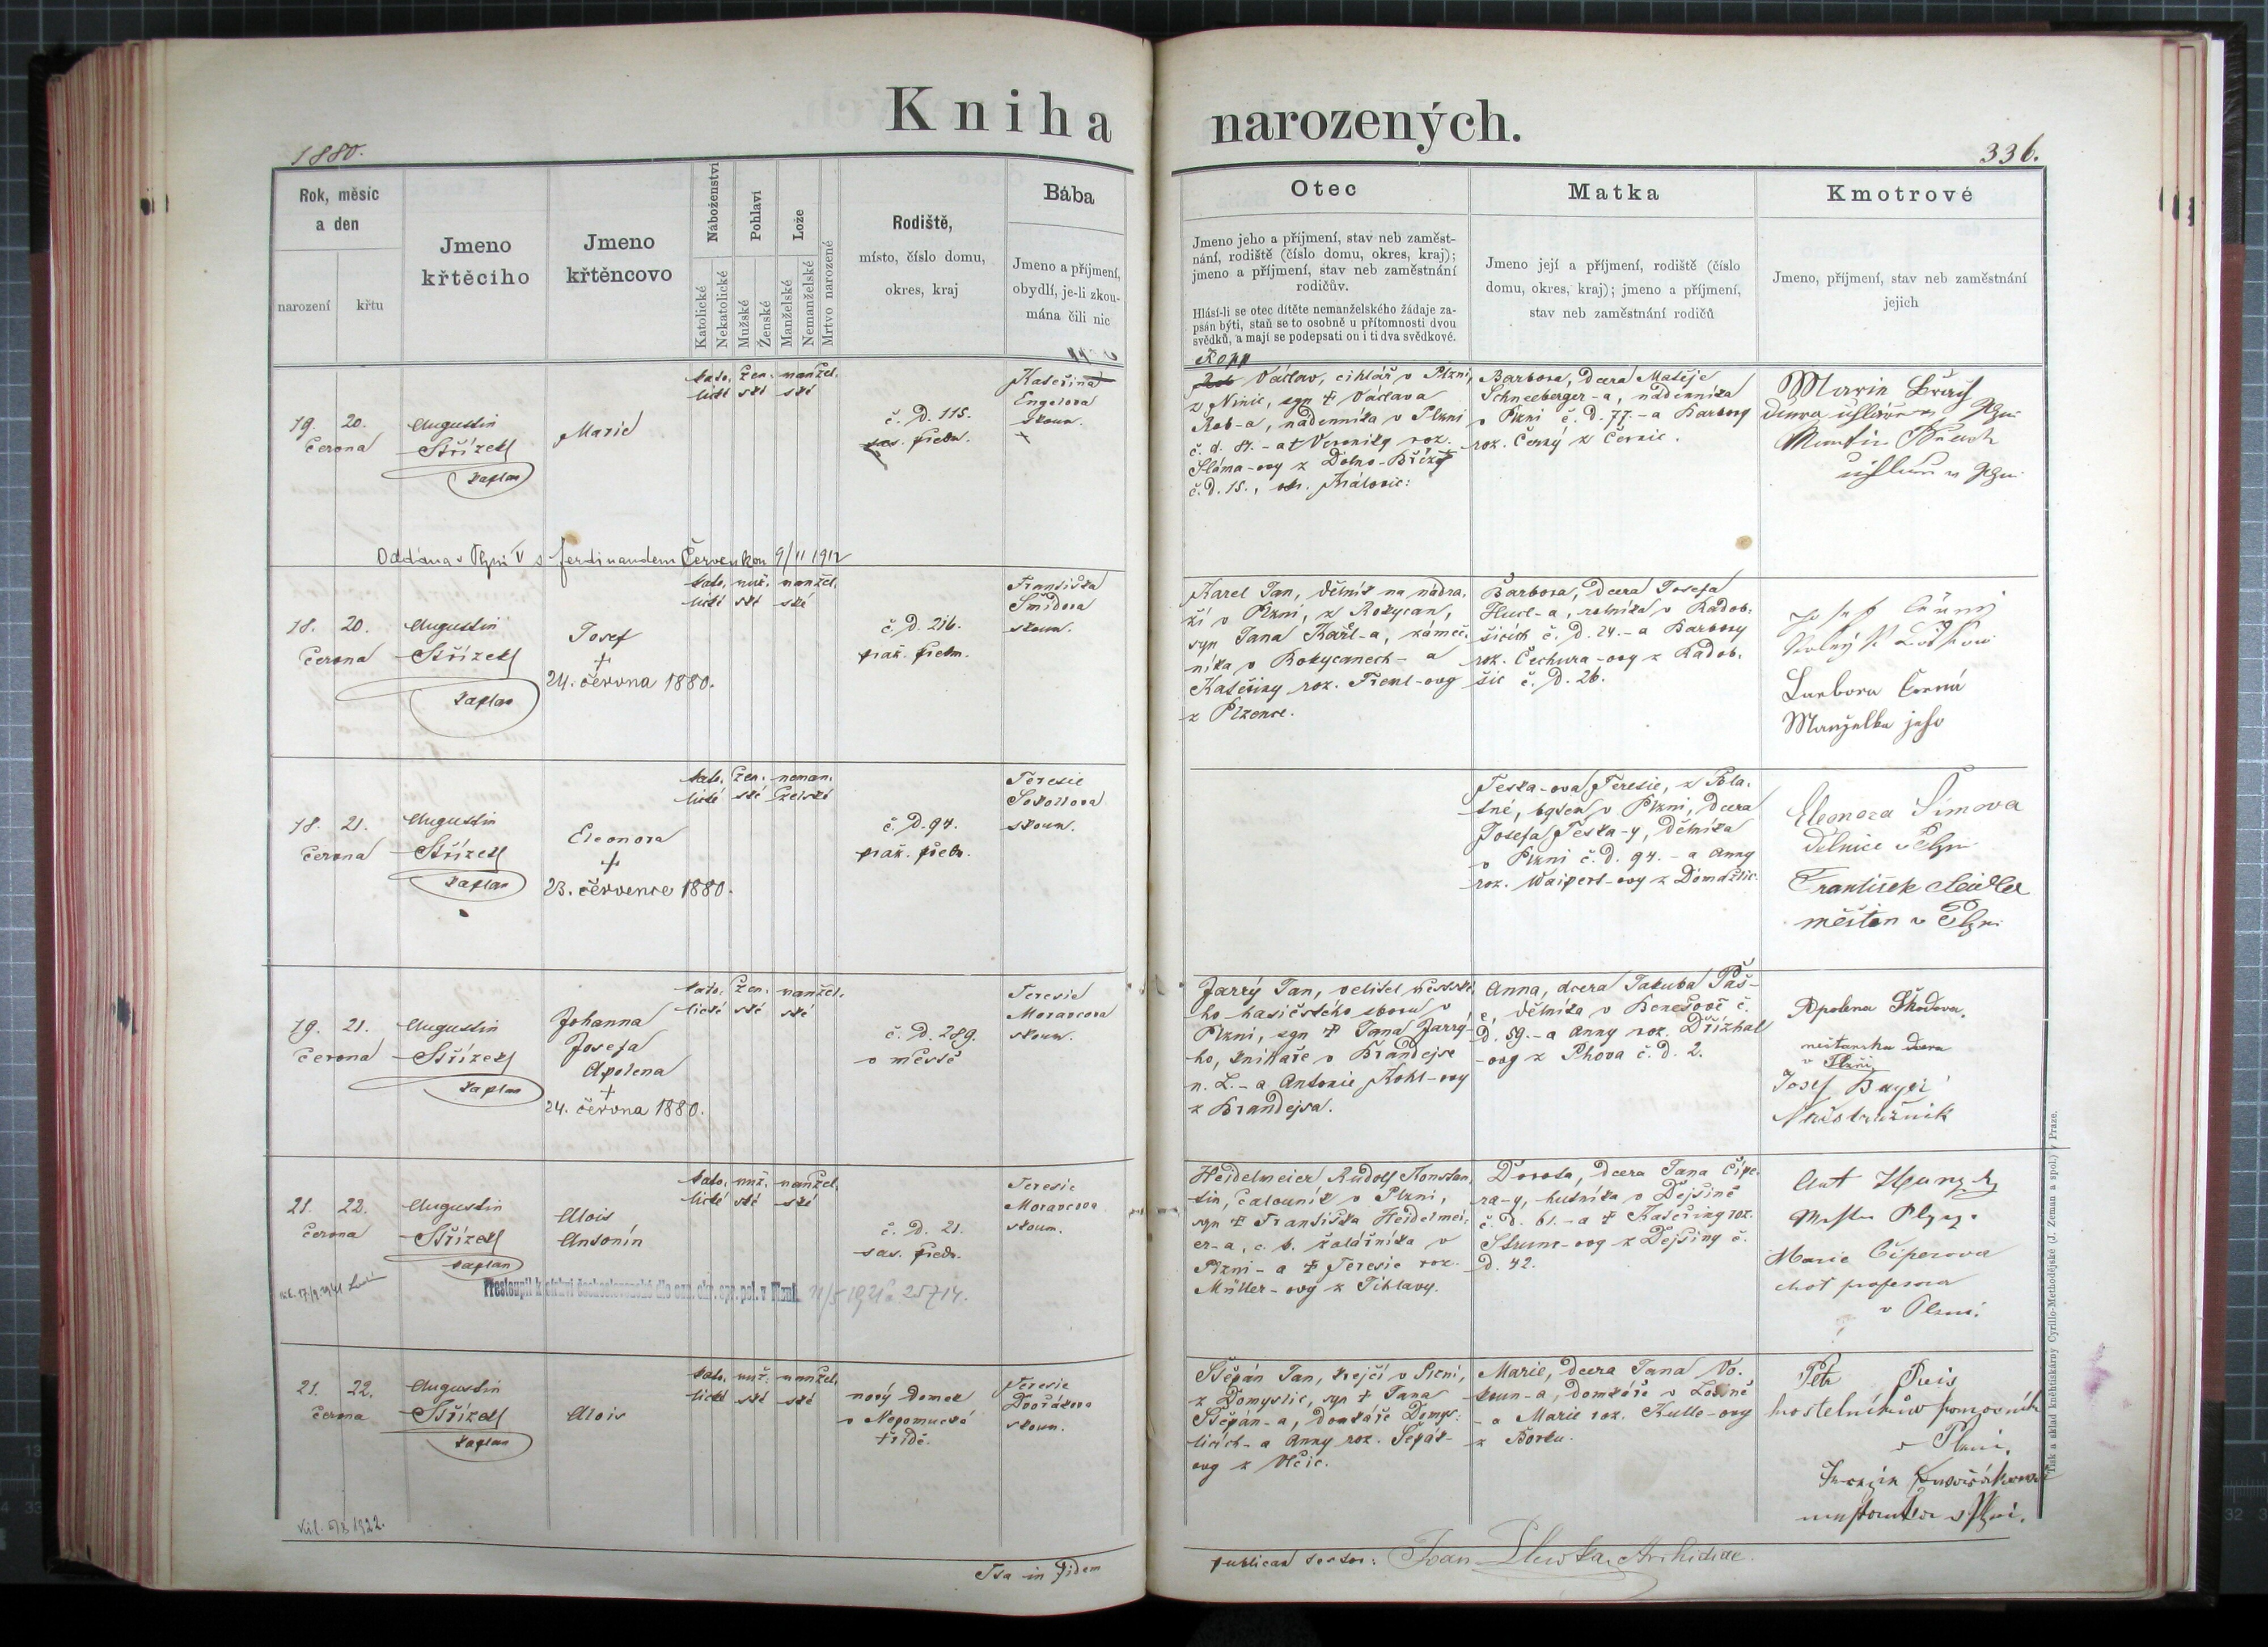 Kniha narozených.
1880.
336.
Rok, měsíc
a den
narození
křtu
Jmeno
křtěcího
Jmeno
křtěncovo
Náboženství
Katolické
Nekatolické
Pohlaví
Mužské
Ženské
Lože
Manželské
Nemanželské
Mrtvo narozené
Rodiště,
místo, číslo domu,
okres, kraj
Bába
Jmeno a příjmení,
obydlí, je-li zkou-
mána čili nic
Otec
Jmeno jeho a příjmení, stav neb zaměst-
nání, rodiště (číslo domu, okres, kraj);
jmeno a příjmení, stav neb zaměstnání
rodičův.
Hlásí-li se otec dítěte nemanželského žádaje za-
psán býti, staň se to osobně u přítomnosti dvou
svědků, a mají se podepsati on i ti dva svědkové.
Matka
Jmeno její a příjmení, rodiště (číslo
domu, okres, kraj); jmeno a příjmení,
stav neb zaměstnání rodičů
Kmotrové
Jmeno, příjmení, stav neb zaměstnání
jejich
19. 20.
června
Augustin
Střízek
kaplan
Marie
kato. žen. manžel.
lické ské ské
č. D. 115.
předm.
Kateřina
Engelova
zkoum.
Kopp
Václav, cihlář v Plzni,
z Ninic, syn † Václava
Kob-a, nádenníka v Plzni
č. d. 81. - a † Veroniky roz.
Sláma-ovy z Dolno-Břízy
č. D. 15., okr. Královic:
Barbora, dcera Matěje
Schneeberger-a, nádenníka
v Plzni č. D. 77. - a Barbory
roz. Černý z Černic.
Oddána v Plzni V s Ferdinandem Červenkou 9/11 1912
18. 20.
června
Augustin
Střízek
kaplan
Josef
†
24. června 1880.
kato. muž. manžel.
lické ské ské
č. D. 216.
praž. předm.
Františka
Šmídova
zkoum.
Karel Jan, dělník na nádra-
ží v Plzni, z Rokycan,
syn Jana Karl-a, zámeč-
níka v Rokycanech - a
Kateřiny roz. Treml-ovy
z Plzence.
Barbora, dcera Josefa
Hucl-a, rolníka v Radob-
šicích č. D. 24. - a Barbory
roz. Čechura-ovy z Radob-
šic č. D. 26.
Josef Černý
Barbora Černá
Manželka jeho
18. 21.
června
Augustin
Střízek
kaplan
Eleonora
†
23. července 1880.
kato. žen. neman.
lické ské želské
č. D. 94.
praž. předm.
Teresie
Sokollova
zkoum.
Teska-ova Teresie, z Bla-
tné, bytem v Plzni, dcera
Josefa Teska-y, dělníka
v Plzni č. D. 94. - a Anny
roz. Waipert-ovy z Domažlic.
Eleonora Šimova
dělnice v Plzni
František Seidler
měšťan v Plzni
19. 21.
června
Augustin
Střízek
kaplan
Johanna
Josefa
Apolena
†
24. června 1880.
kato. žen. manžel.
lické ské ské
č. D. 289.
v městě
Teresie
Moravcova
zkoum.
Jarrý Jan, velitel městské-
ho hasičského sboru v
Plzni, syn † Jana Jarrý-
ho, knihaře v Brandejse
n. L. - a Antonie Kohl-ovy
z Brandejsa.
Anna, dcera Jakuba Paš-
e, dělníka v Benešově č.
D. 59. - a Anny roz. Dřízhal
-ovy z Phova č. D. 2.
Apolena Škodova.
měšťanska dcera
v Plzni
Josef Bayer
Nadstrážník
21. 22.
června
Augustin
Střízek
kaplan
Alois
Antonín
kato. muž. manžel.
lické ské ské
č. D. 21.
sas. předm.
Teresie
Moravcova
zkoum.
Přestoupil k církvi československé dle ozn. okr. spr. pol. v Plzni 21/5 1921 č. 25714.
Heidelmeier Rudolf Konstan-
tin, čalouník v Plzni,
syn † Františka Heidelmei-
er-a, c. k. žalářníka v
Plzni - a † Teresie roz.
Müller-ovy z Jihlavy.
Dorota, dcera Jana Čípe-
ra-y, hutníka v Dejšině
č. D. 61. - a † Kateřiny roz.
Strunc-ovy z Dejšiny č.
D. 42.
Marie Čiperova
choť profesora
v Plzni.
21. 22.
června
Augustin
Střízek
kaplan
Alois
kato. muž. manžel.
lické ské ské
nový domek
v Nepomucká
třídě.
Teresie
Dvořákova
zkoum.
Štěpán Jan, krejčí v Plzni,
z Domyslic, syn † Jana
Štěpán-a, domkáře Domys-
licích - a Anny roz. Šepák-
ovy z Vlčic.
Marie, dcera Jana Vo-
koun-a, domkáře v Losině
- a Marie roz. Kulle-ovy
z Borku.
Petr Preis
v Plzni.
Vyd. 5/8 1922.
Ita in fidem
publicam testor: Joan Hlewka Archidiac.
Tisk a sklad knihtiskárny Cyrillo-Methodějské (J. Zeman a spol.) v Praze.